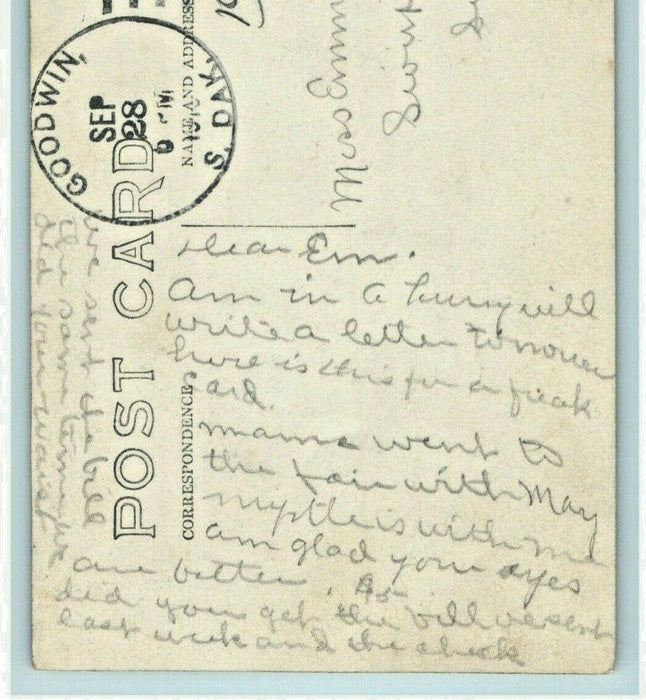 GOODWIN,
SEP
28
S. DAK.
POST CARD
NAME AND ADDRESS
CORRESPONDENCE
Dear Em.
Am in a hurry will
write a letter tomorrow
here is this for a freak
card.
mama went to
the fair with May
myrtle is with me
am glad your eyes
are better. $5-
did you get the bill we sent
last week and the check
we sent the bill
the same time we
did your waist